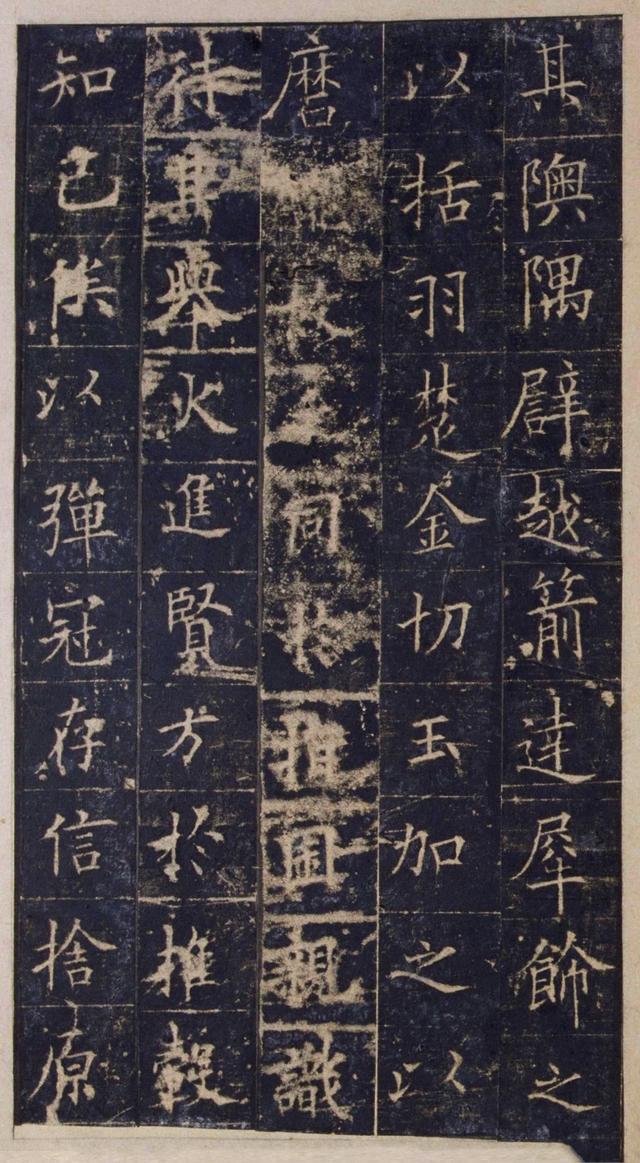 其隩隅辟越箭達犀飾之
以括羽楚金切玉加之以
磨乏同於指囷親識
待其舉火進賢方於推轂
知己俟以彈冠存信捨原